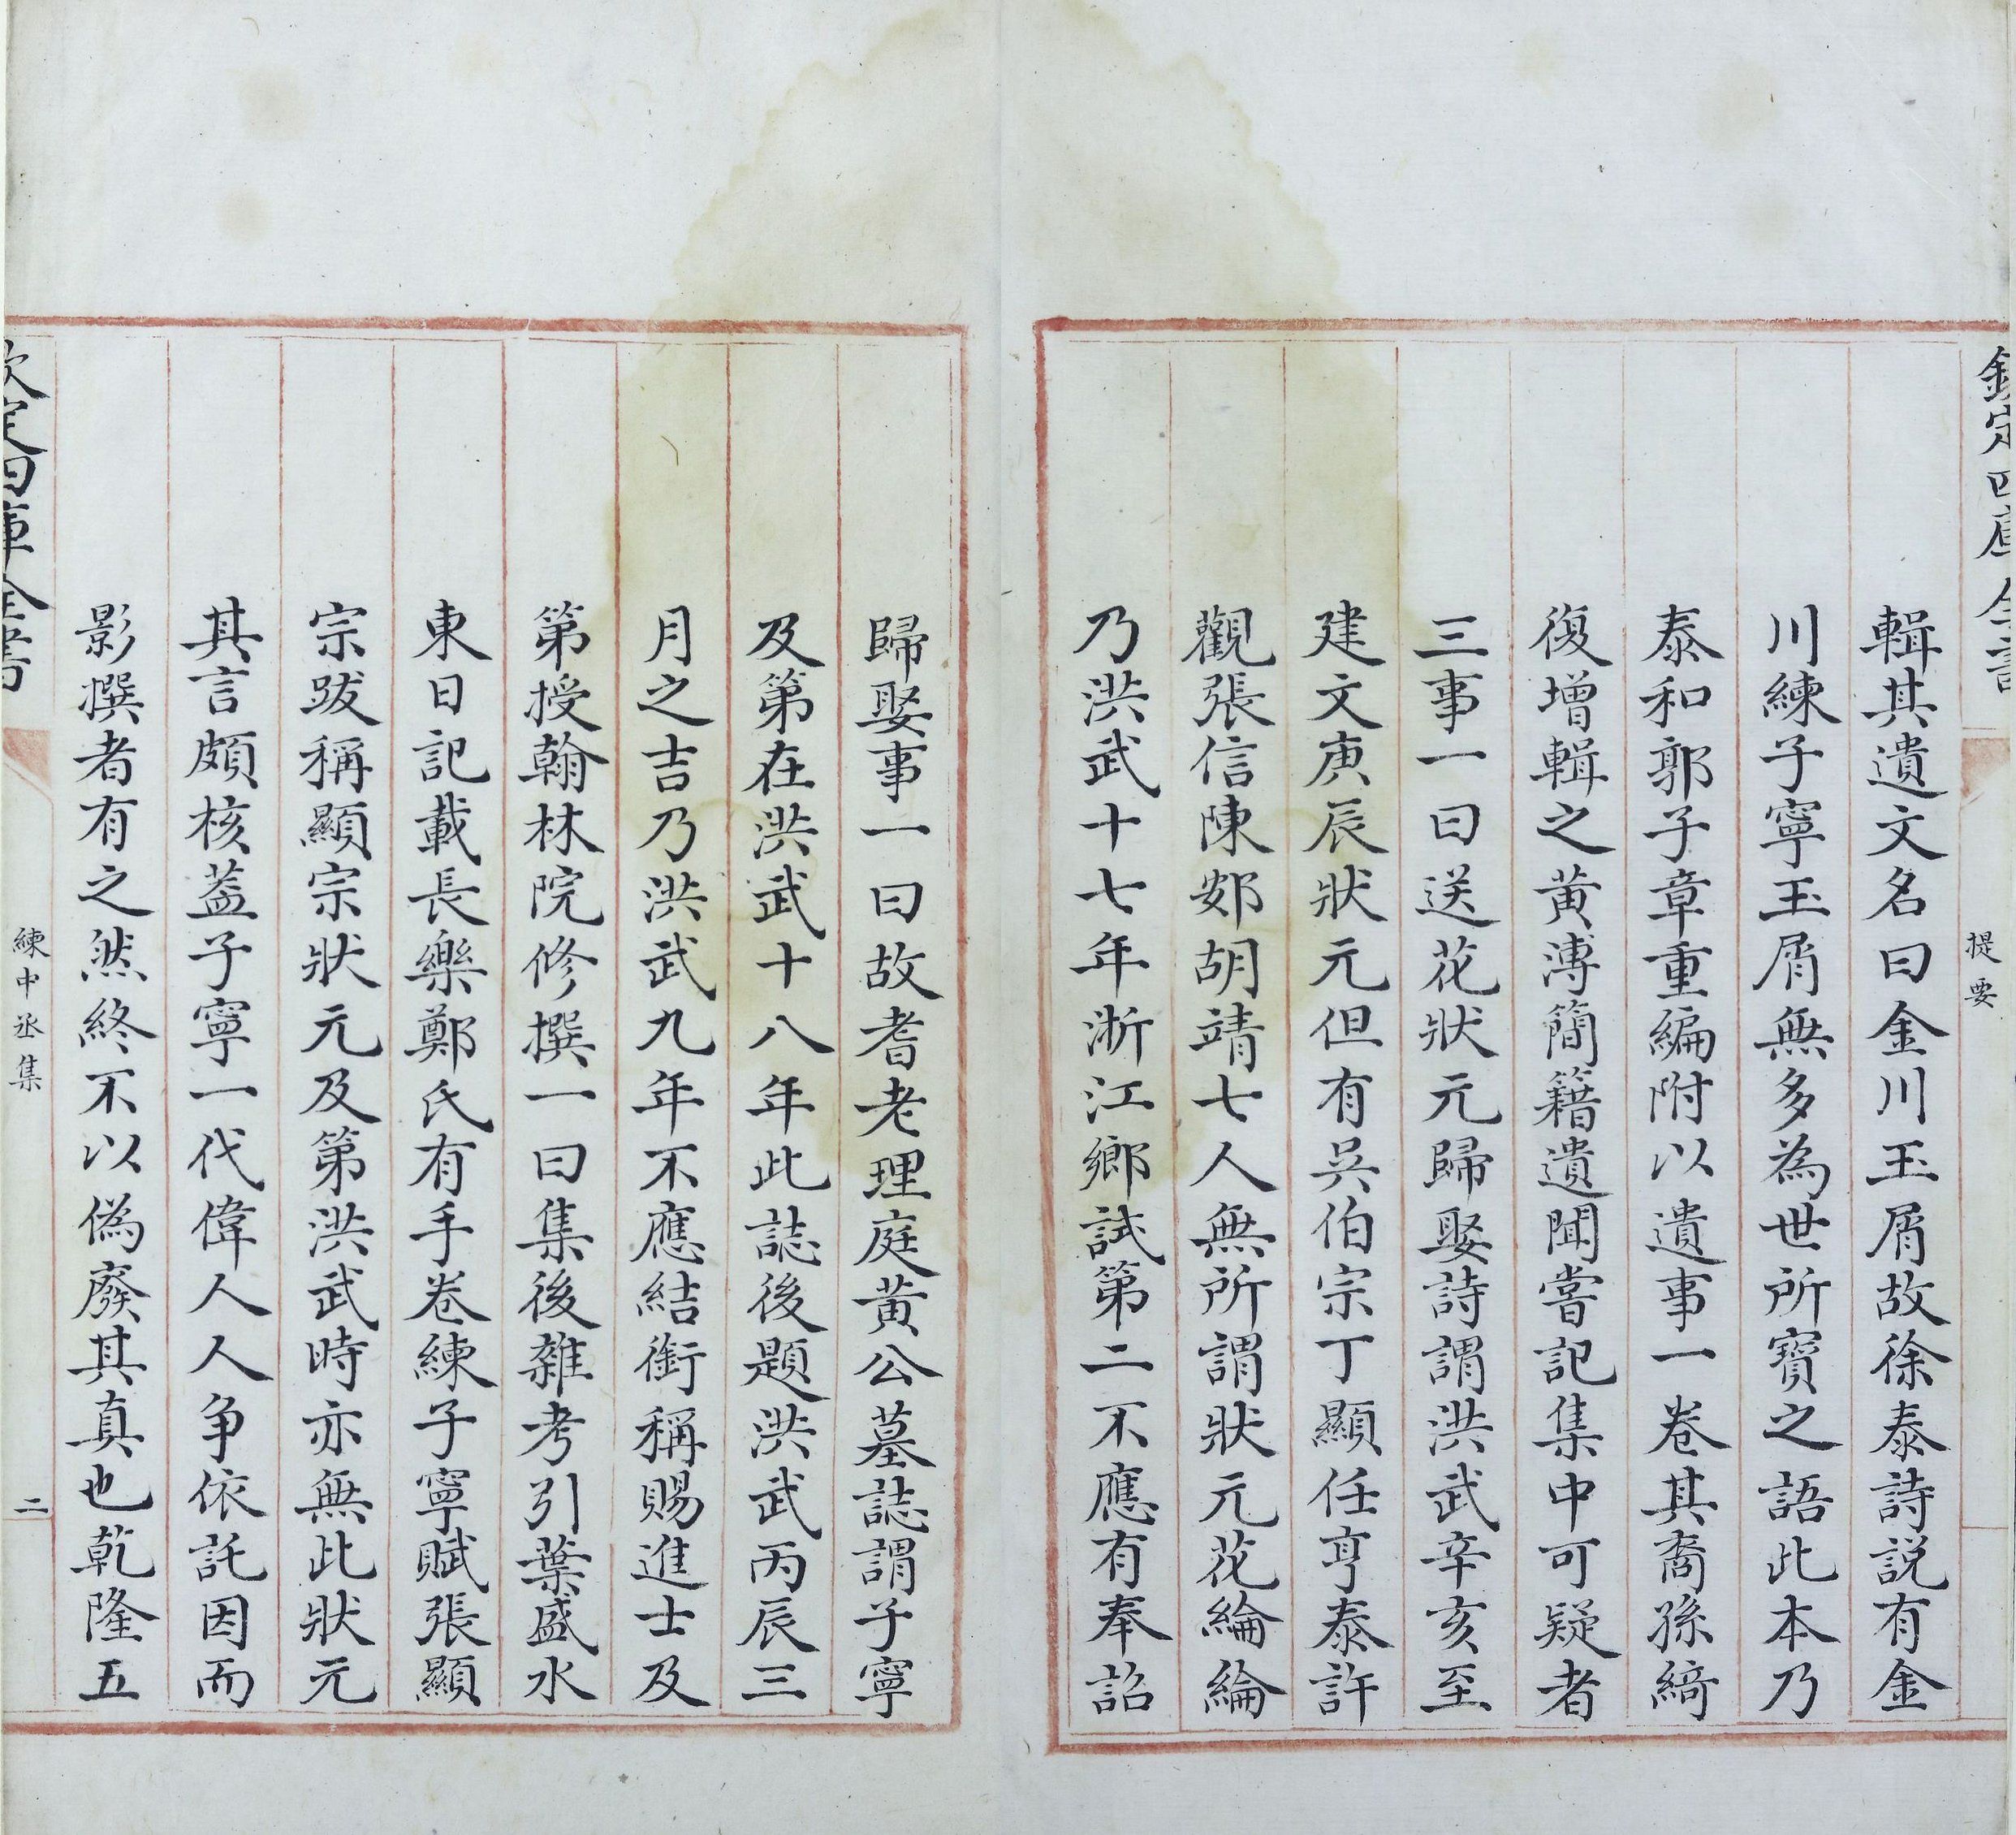 欽定四庫全書
提要
輯其遺文名曰金川玉屑故徐泰詩説有金
川練子寧玉屑無多為世所寶之語此本乃
泰和郭子章重編附以遺事一卷其裔孫綺
復増輯之黄溥簡籍遺聞嘗記集中可疑者
三事一曰送花狀元歸娶詩謂洪武辛亥至
建文庚辰狀元但有吳伯宗丁顯任亨泰許
觀張信陳䢿胡靖七人無所謂狀元花綸綸
乃洪武十七年浙江鄉試第二不應有奉詔
歸娶事一曰故耆老理庭黄公墓誌謂子寧
及第在洪武十八年此誌後題洪武丙辰三
月之吉乃洪武九年不應結銜稱賜進士及
第授翰林院修撰一曰集後雜考引葉盛水
東日記載長樂鄭氏有手卷練子寧賦張顯
宗跋稱顯宗狀元及第洪武時亦無此狀元
其言頗核葢子寧一代偉人人争依託因而
影撰者有之然終不以偽廢其真也乾隆五
欽定四庫全書
練中丞集
二